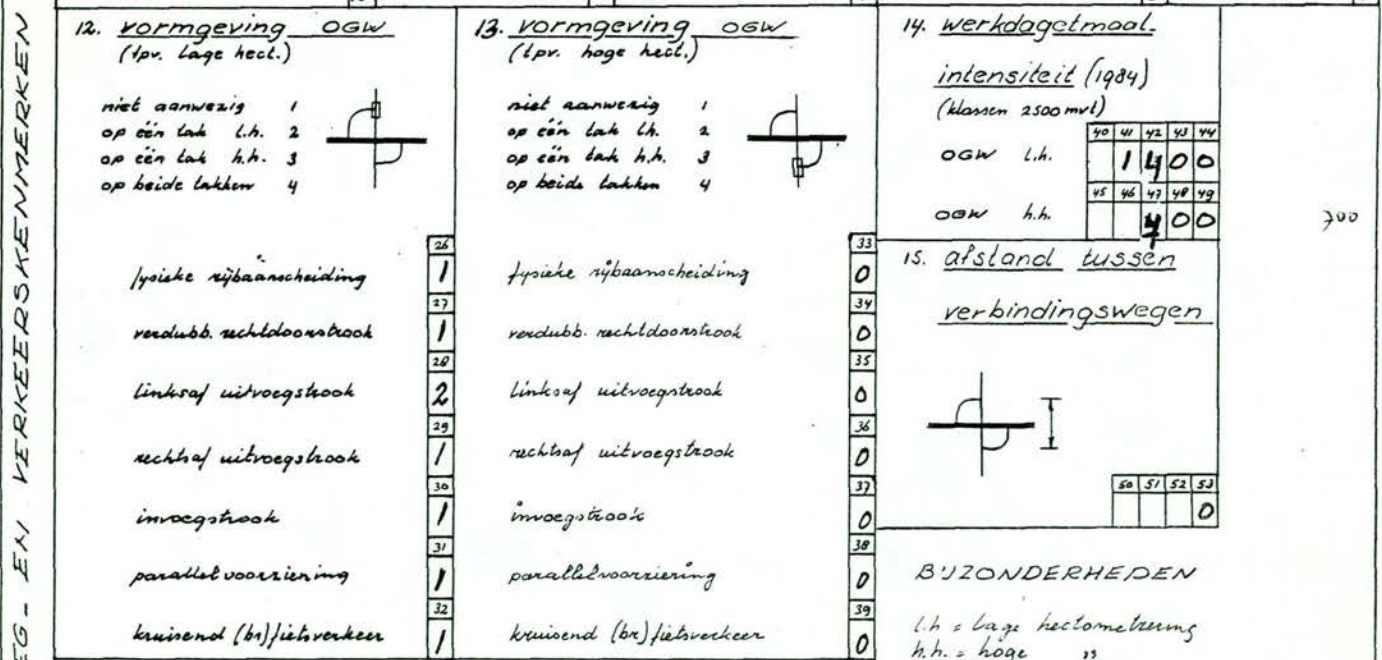 WEG- EN VERKEERSKENMERKEN
12. vormgeving OGW
(tpv. lage hect.)
niet aanwezig 1
op één tak l.h. 2
op één tak h.h. 3
op beide takken 4
26
fysieke rijbaanscheiding 1
27
verdubb. rechtdoorstrook 1
28
linksaf uitvoegstrook 2
29
rechtsaf uitvoegstrook 1
30
invoegstrook 1
31
parallelvoorziening 1
32
kruisend (br) fietsverkeer 1
13. vormgeving OGW
(tpv. hoge hect.)
niet aanwezig 1
op één tak l.h. 2
op één tak h.h. 3
op beide takken 4
33
fysieke rijbaanscheiding 0
34
verdubb. rechtdoorstrook 0
35
linksaf uitvoegstrook 0
36
rechtsaf uitvoegstrook 0
37
invoegstrook 0
38
parallelvoorziening 0
39
kruisend (br) fietsverkeer 0
14. werkdagetmaal-
intensiteit (1984)
(klassen 2500 mvt)
40 41 42 43 44
OGW l.h. 1 4 0 0
45 46 47 48 49
OGW h.h. 00
700
15. afstand tussen
verbindingswegen
50 51 52 53
0
BIJZONDERHEDEN
l.h = lage hectometrering
h.h. = hoge "